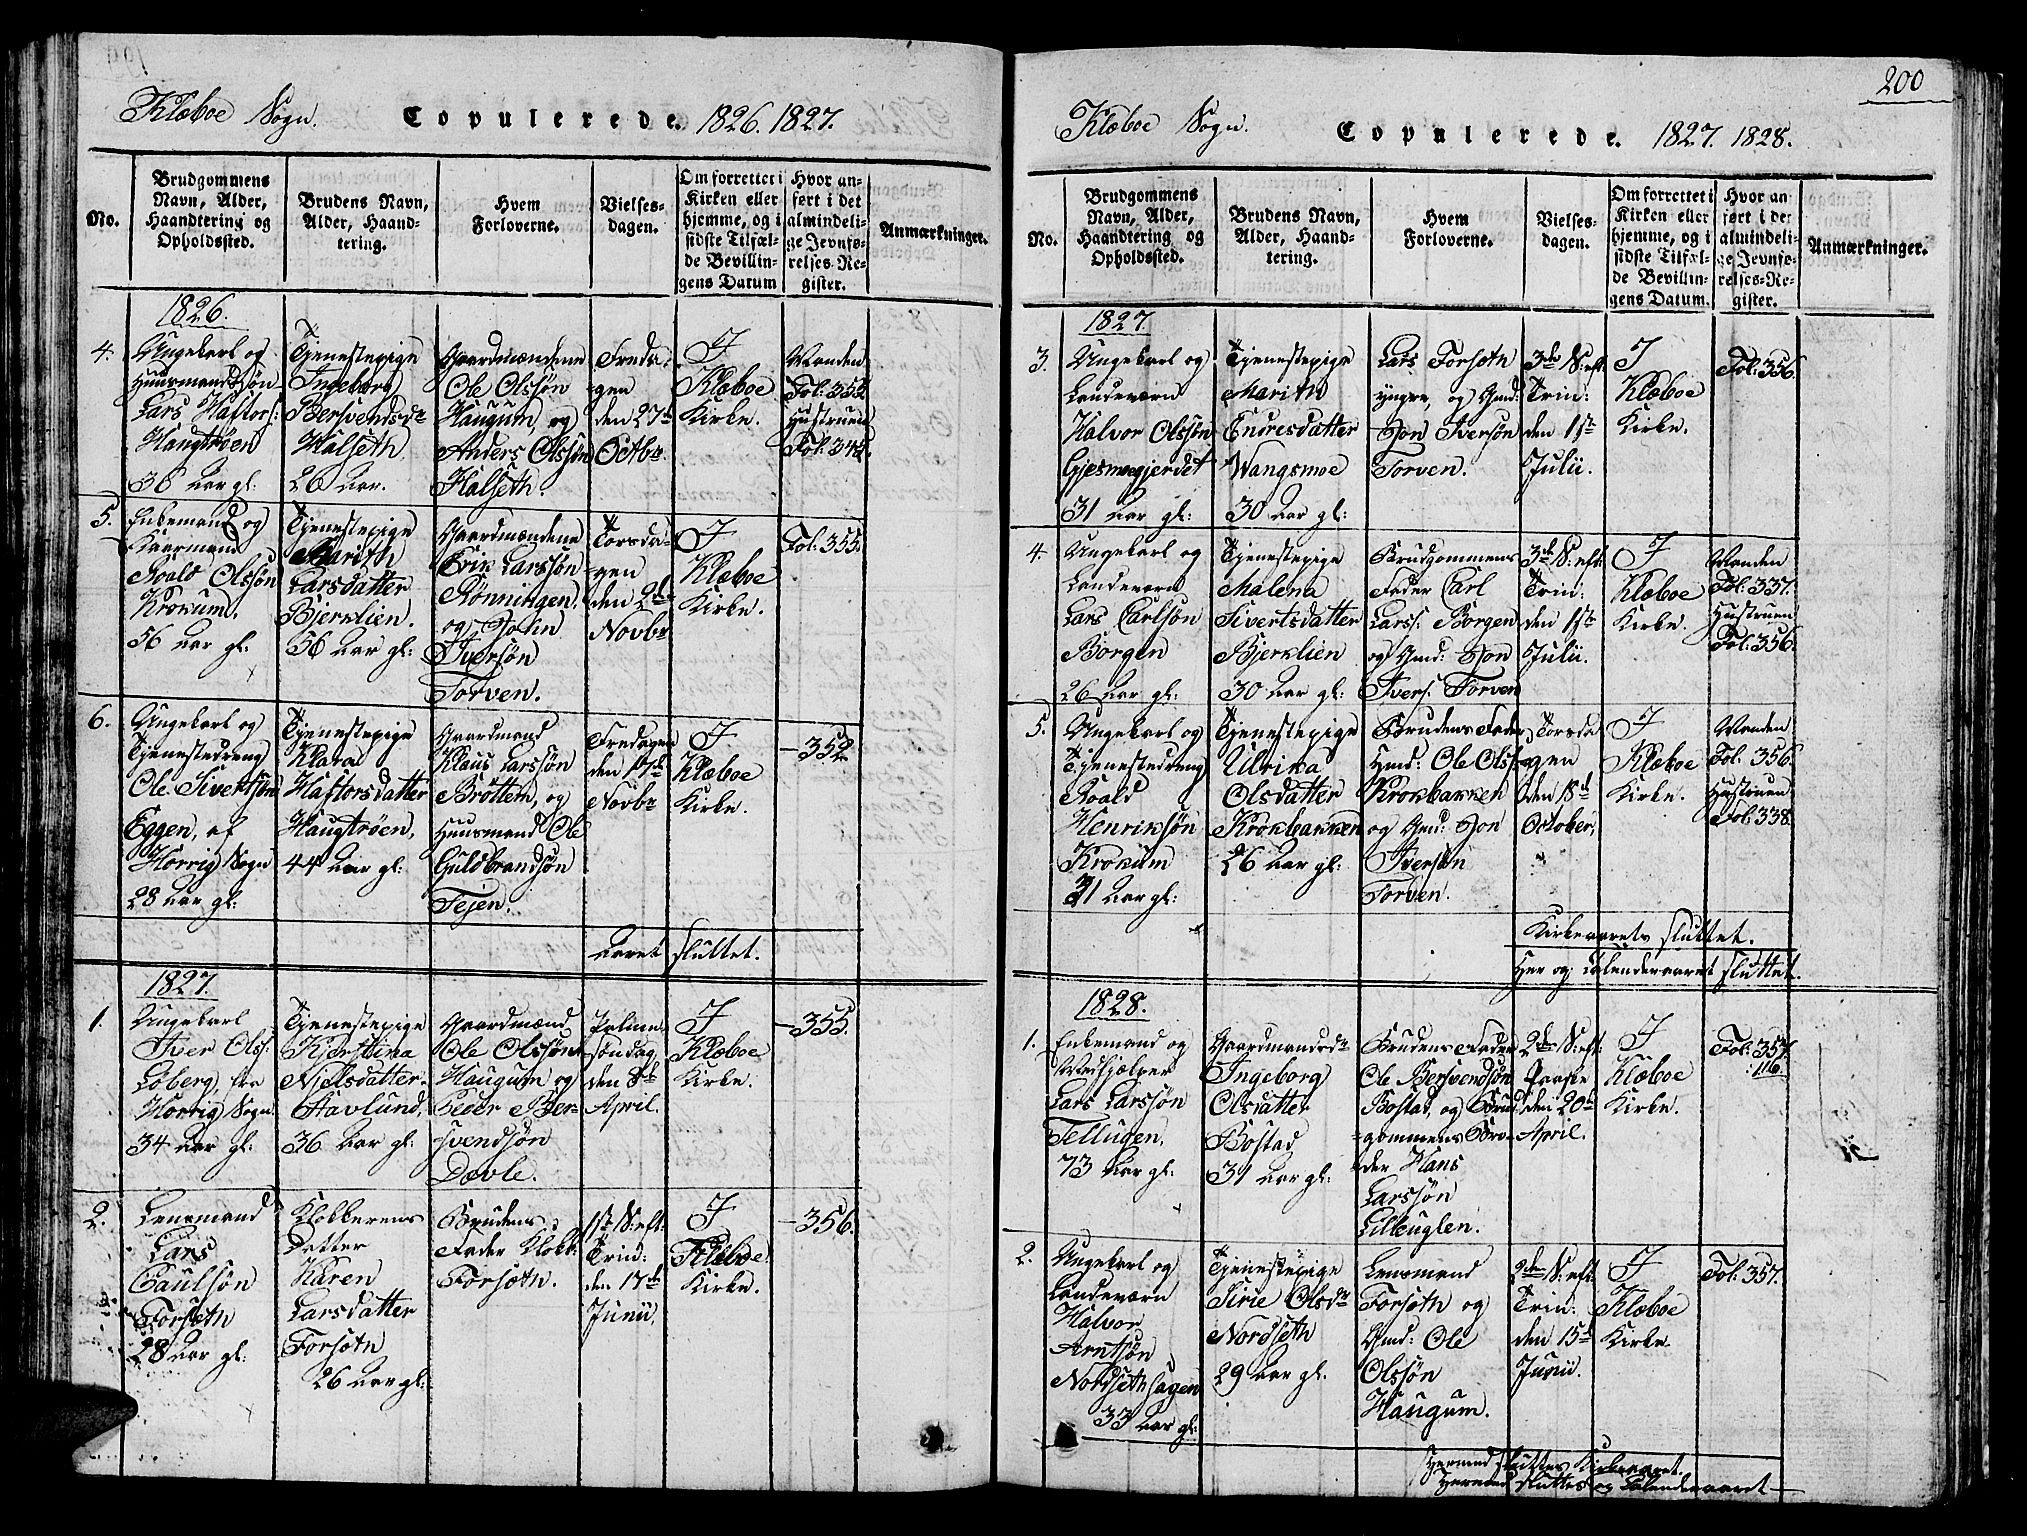 Klæboe Sogn. Copulerede. 1826. 1827.
No.
Brudgommens
Navn, Alder,
Haandtering og
Opholdssted.
Brudens Navn,
Alder, Haand-
tering.
Hvem
Forloverne.
Vielses-
dagen.
Om forrettet i
Kirken eller
hjemme, og i
sidste Tilfæl-
de Bevillin-
gens Datum
Hvor an-
ført i det
almindeli-
ge Jevnfø-
relses-Re-
gister.
Anmærkninger.
1826.
4.
Ungekarl og
Huusmandssøn
Lars Haftors:
Haugtrøen
36 Aar gl:
Tjenestepige
Ingeborg
Bersvendsdr
Halseth
26 Aar.
Gaardmændene
Ole Olssøn
Haugum, og
Anders Olssøn
Halseth.
Freda-
gen
den 27de
Octbr
I
Klæboe
Kirke.
Manden
Fol: 355.
Hustruen
Fol: 342.
5.
Enkemand og
Kaarmand
Roald Olssøn
Krokum.
56 Aar gl:
Tjenestepige
Marith
Larsdatter
Bjerklien.
56 Aar gl:
Gaardmændene
Erik Larssøn
Rønningen,
og John
Iversøn
Torven.
Torsda-
gen
den 2de
Novbr
I
Klæboe
Kirke.
Fol: 355.
6.
Ungekarl og
Tjenestedreng
Ole Sivertsøn
Eggen, af
Horrig Sogn
28 Aar gl:
Tjenestepige
Klara
Haftorsdatter
Haugtrøen,
44 Aar gl:
Gaardmand
Klaus Larssøn
Brøttem, og
Huusmand Ole
Guldbrandsøn
Tejen.
Fredagen
den 17de
Novbr
I
Klæboe
Kirke.
-352.
Aaret sluttet.
1827.
1.
Ungekarl
Iver Olss:
Loberg, fra
Horrig Sogn
34 Aar gl:
Tjenestepige
Kjerstina
Njelsdatter
Stavlund.
36 Aar gl:
Gaardmænd
Ole Olssøn
Haugum og
Peder Ber-
svendsøn
Dovle.
Palme-
søndag
den 8de
April.
I
Klæboe
Kirke.
-355.
2.
Lensmand
Lars
Paulsøn
Forseth
28 Aar gl:
Klokkerens
Datter
Karen
Larsdatter
Forsøth
26 Aar gl:
Brudens
Fader Klokk:
Forsøth.
1ste S: eft:
Trin:
den 17de
Junii.
I
Klæboe
Kirke.
-356.
200
Klæboe Sogn. Copulerede. 1827. 1828.
No.
Brudgommens
Navn, Alder,
Haandtering og
Opholdssted.
Brudens Navn,
Alder, Haand-
tering.
Hvem
Forloverne.
Vielses-
dagen.
Om forrettet i
Kirken eller
hjemme, og i
sidste Tilfæl-
de Bevillin-
gens Datum.
Hvor an-
ført i det
almindeli-
ge Jevnfø-
relses-Re-
gister.
Anmærkninger.
1827.
3.
Ungekarl og
Landeværn
Halvor Olssøn
Gjesmogjerdet
31 Aar gl:
Tjenestepige
Marith
Endresdatter
Wangsmoe
30 Aar gl:
Lars Forsøth
yngre, og Gmd:
Jon Iversøn
Torven.
3de S: eft:
Trin:
den 1ste
Julii.
I
Klæboe
Kirke.
Fol: 356.
4.
Ungekarl og
Landeværn
Lars Carlsøn
Borgen
26 Aar gl:
Tjenestepige
Malena
Sivertsdatter
Bjerklien
30 Aar gl:
Brudgommens
Fader Carl
Larss: Borgen
og Gmd: Jon
Ivers: Torven
3de S: eft:
Trin:
den 1ste
Julii.
I
Klæboe
Kirke.
Manden
Fol: 337.
Hustruen
Fol: 356.
5.
Ungekarl og
Tjenestedreng
Roald
Henriksøn
Krokum
31 Aar gl:
Tjenestepige
Ulrika
Olsdatter
Krokbakken
26 Aar gl:
Brudens Fader
Hmd: Ole Olss:
Krokbakken
og Gmd: Jon
Iversøn
Torven.
Torsda-
gen
den 18de
October.
I
Klæboe
Kirke.
Manden
Fol. 356.
Hustruen
Fol. 338.
Kirkeaarets sluttet.
Her og Calenderaaret sluttet.
1828.
1.
Enkemand og
Medhjelper
Lars Larssøn
Tellugen,
73 Aar gl:
Gaardmandsdr
Ingeborg
Olsdatter
Bostad
31 Aar gl:
Brudens Fader
Ole Bersvendsøn
Bostad, og Brud-
gommens Bro-
der Hans
Larssøn
Lilleuglen.
2den S: eft:
Paaske
den 20de
April.
I
Klæboe
Kirke.
Fol: 357.
: 116.
2.
Ungekarl og
Landeværn
Halvor
Arntsøn
Nordsethhagen
33 Aar gl:
Tjenestepige
Sirie Olsdr
Nordseth
29 Aar gl.
Lensmand
Forsøth og
Gmd: Ole
Olssøn
Haugum.
2den S: eft:
Trin:
den 15de
Junii.
I
Klæboe
Kirke.
Fol. 357.
Hermed sluttes Kirkeaaret.
Hermed sluttes og Calenderaaret